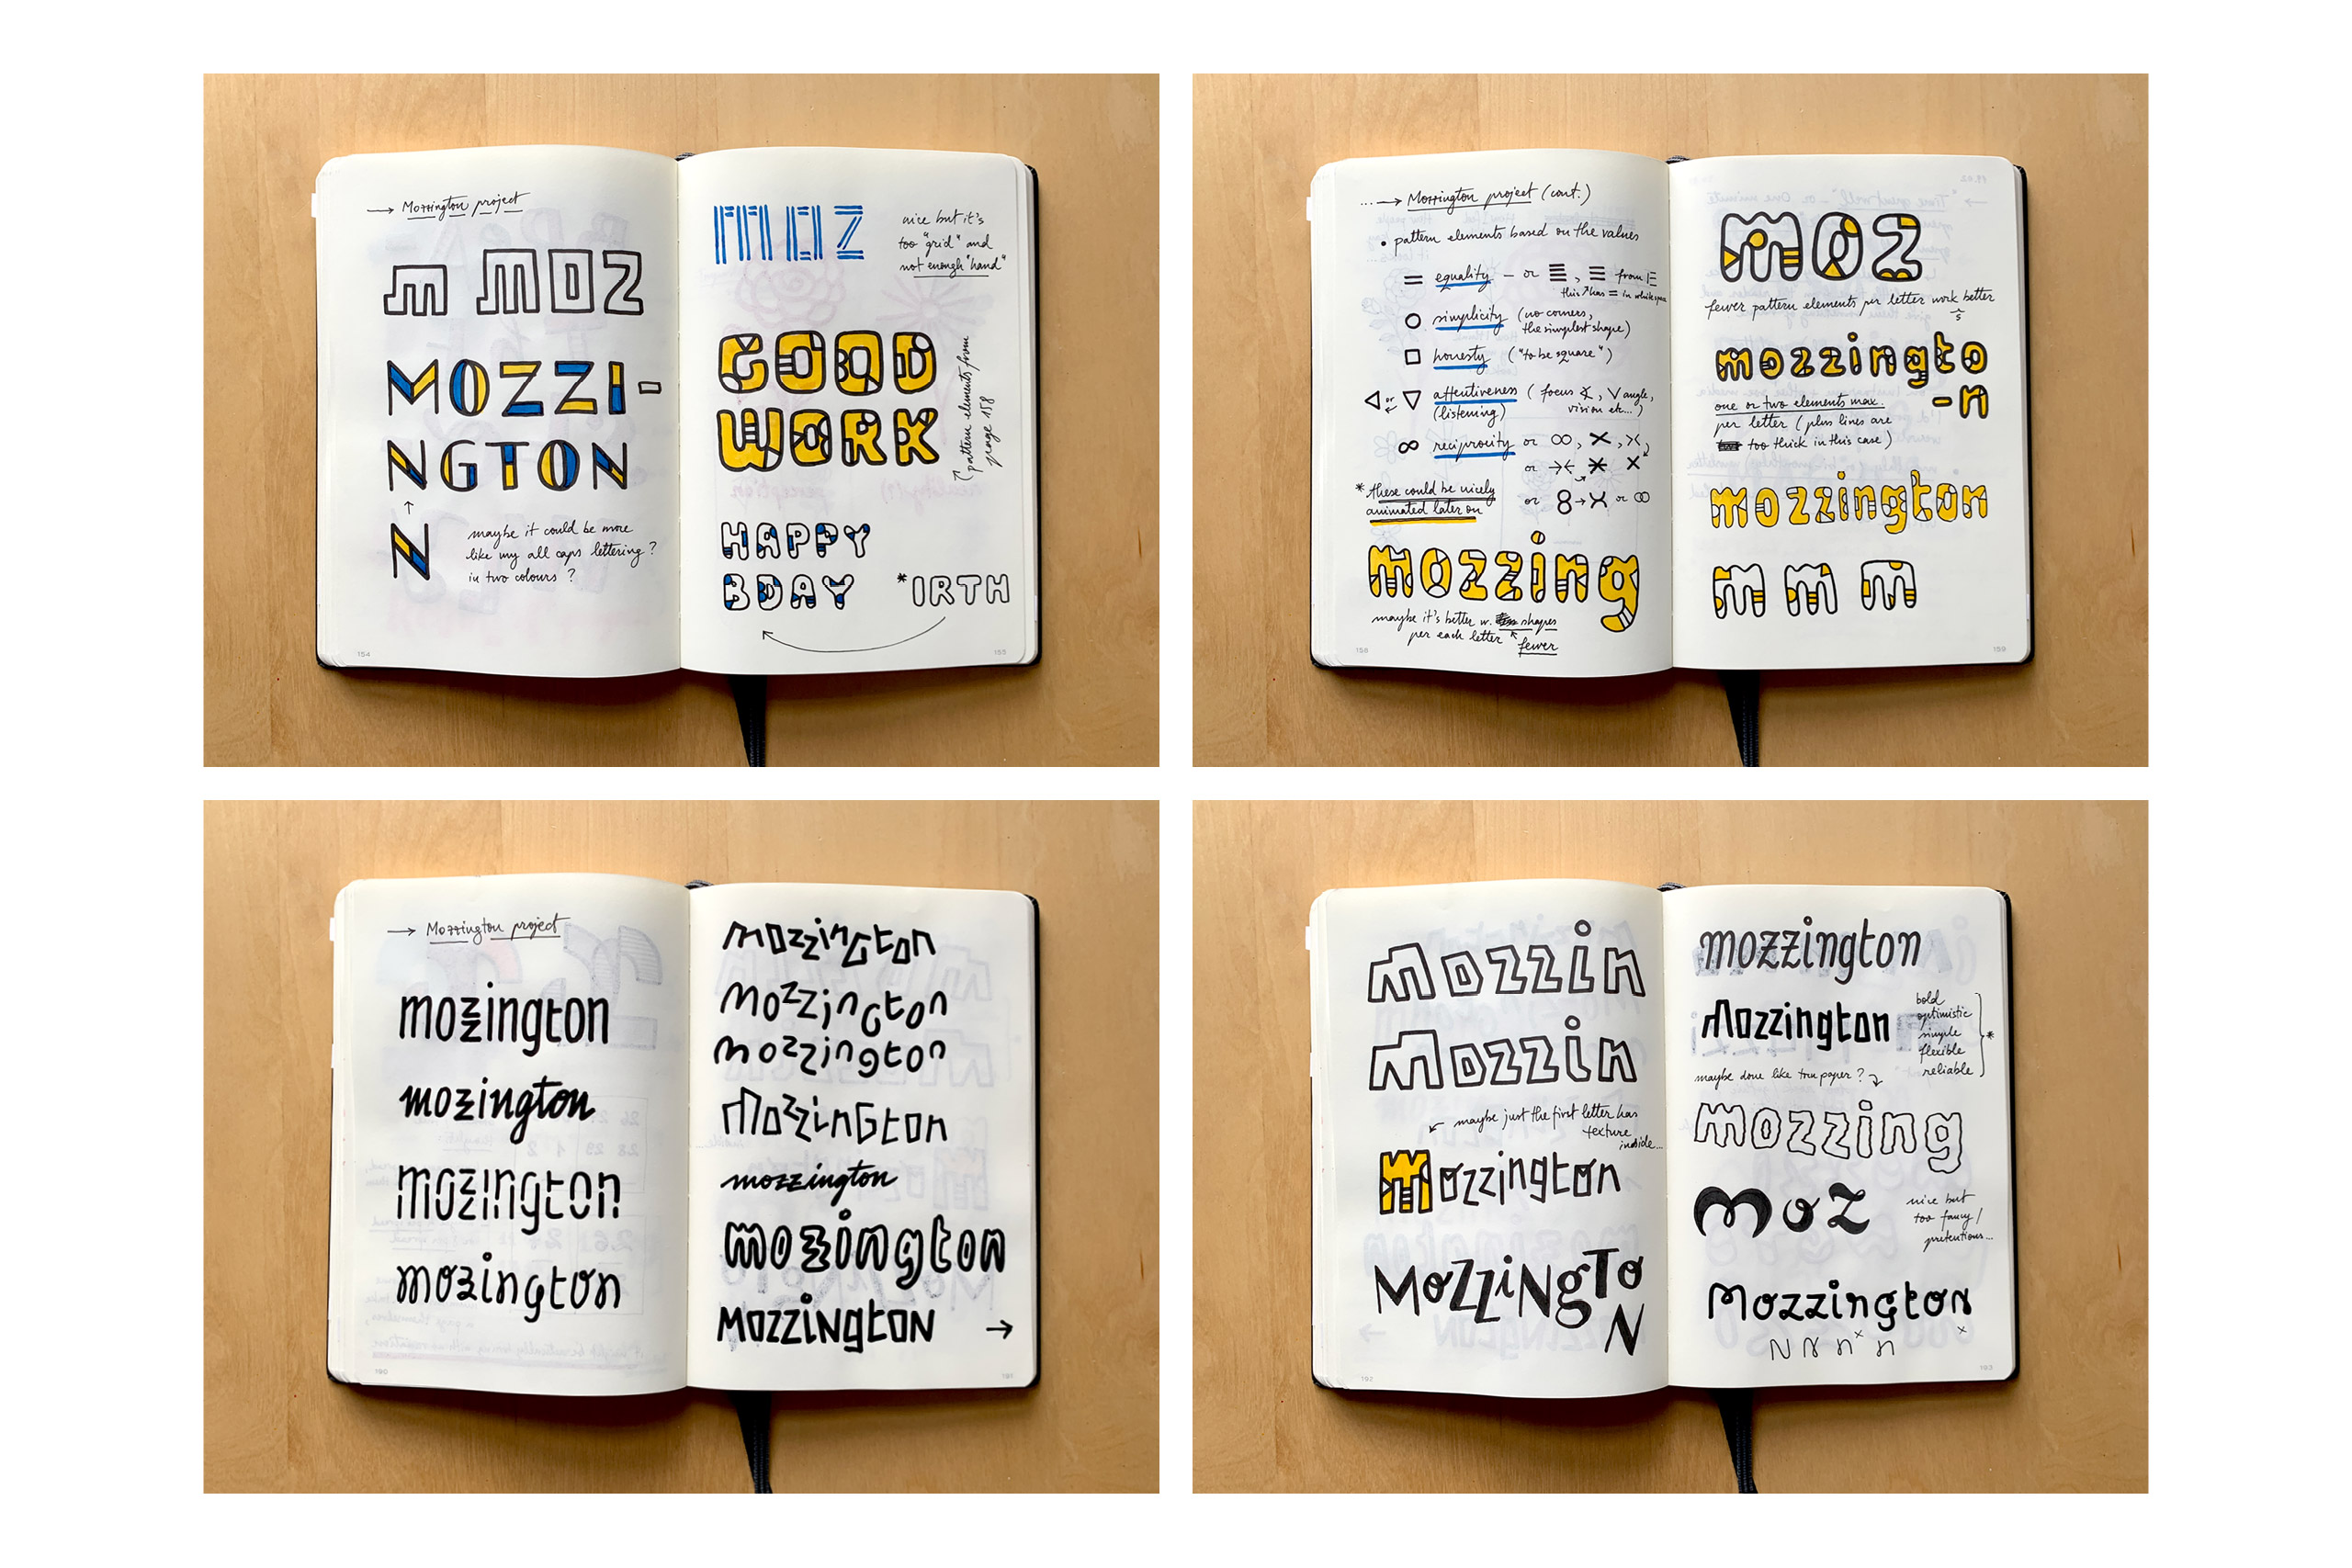 → Mozzington project
m MOZ
MOZZI-
NGTON
↑
N
maybe it could be more
like my all caps lettering?
in two colours?
154
MOZ
nice but it's
too "grid" and
not enough "hand"
GOOD
WORK
pattern elements from
page 158
HAPPY
BDAY
*IRTH
155
...→ Mozzington project (cont.)
• pattern elements based on the values
= equality – or ≣, ≡ from E
this ↗ has = in white space
○ simplicity (no corners,
the simplest shape)
□ honesty ("to be square")
◁ or ▽ attentiveness (focus ∢, V angle,
(listening) vision etc...)
∞ reciprocity or ∞, ✕, ›‹,
or →←, ✳, ✕
or 8→)( or ∞
* these could be nicely
animated later on
mozzing
maybe it's better w. shapes
per each letter ↖ fewer
158
moz
fewer pattern elements per letter work better
s
mozzingto
-n
one or two elements max.
per letter (plus lines are
too thick in this case)
mozzington
m m m
159
→ Mozzington project
mozzington
mozzington
mozzington
mozington
190
mozzinGton
mozzington
mozzington
mozzinGton
mozzington
mozzington
MOZZiNgtON
→
191
mozzin
mozzin
↙ maybe just the first letter has
texture
inside...
mozzington
MoZZiNgTo
N
192
mozzington
mozzington
bold
optimistic
simple
flexible
reliable
*
maybe done like torn paper?
mozzing
moz
nice but
too fancy/
pretentious...
Mozzington
N n n n
193